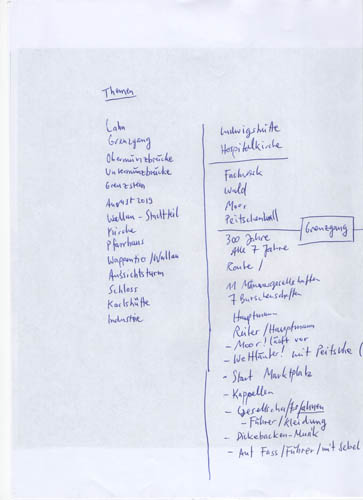 Themen
Lahn
Grenzgang
Obermünzbrücke
Untermünzbrücke
Grenzstein
August 2019
Wallau - Stadtteil
Kirche
Pfarrhaus
Wappentier/Wallau
Aussichtsturm
Schloss
Karlshütte
Industrie
Ludwigshütte
Hospitalkirche
Fachwerk
Wald
Moor
Peitschenknall
Grenzgang
300 Jahre
Alle 7 Jahre
Route /
11 Männergesellschaften
7 Burschenschaften
Hauptmann
Reiter/Hauptmann
- Moor! läuft vor
- Wettläufer! mit Peitsche (
- Start Marktplatz
- Kapellen
- Gesellschafts
- Führer/Kleidung
- Dickebacken-Musik
- Auf Fass/Führer/mit Sebel